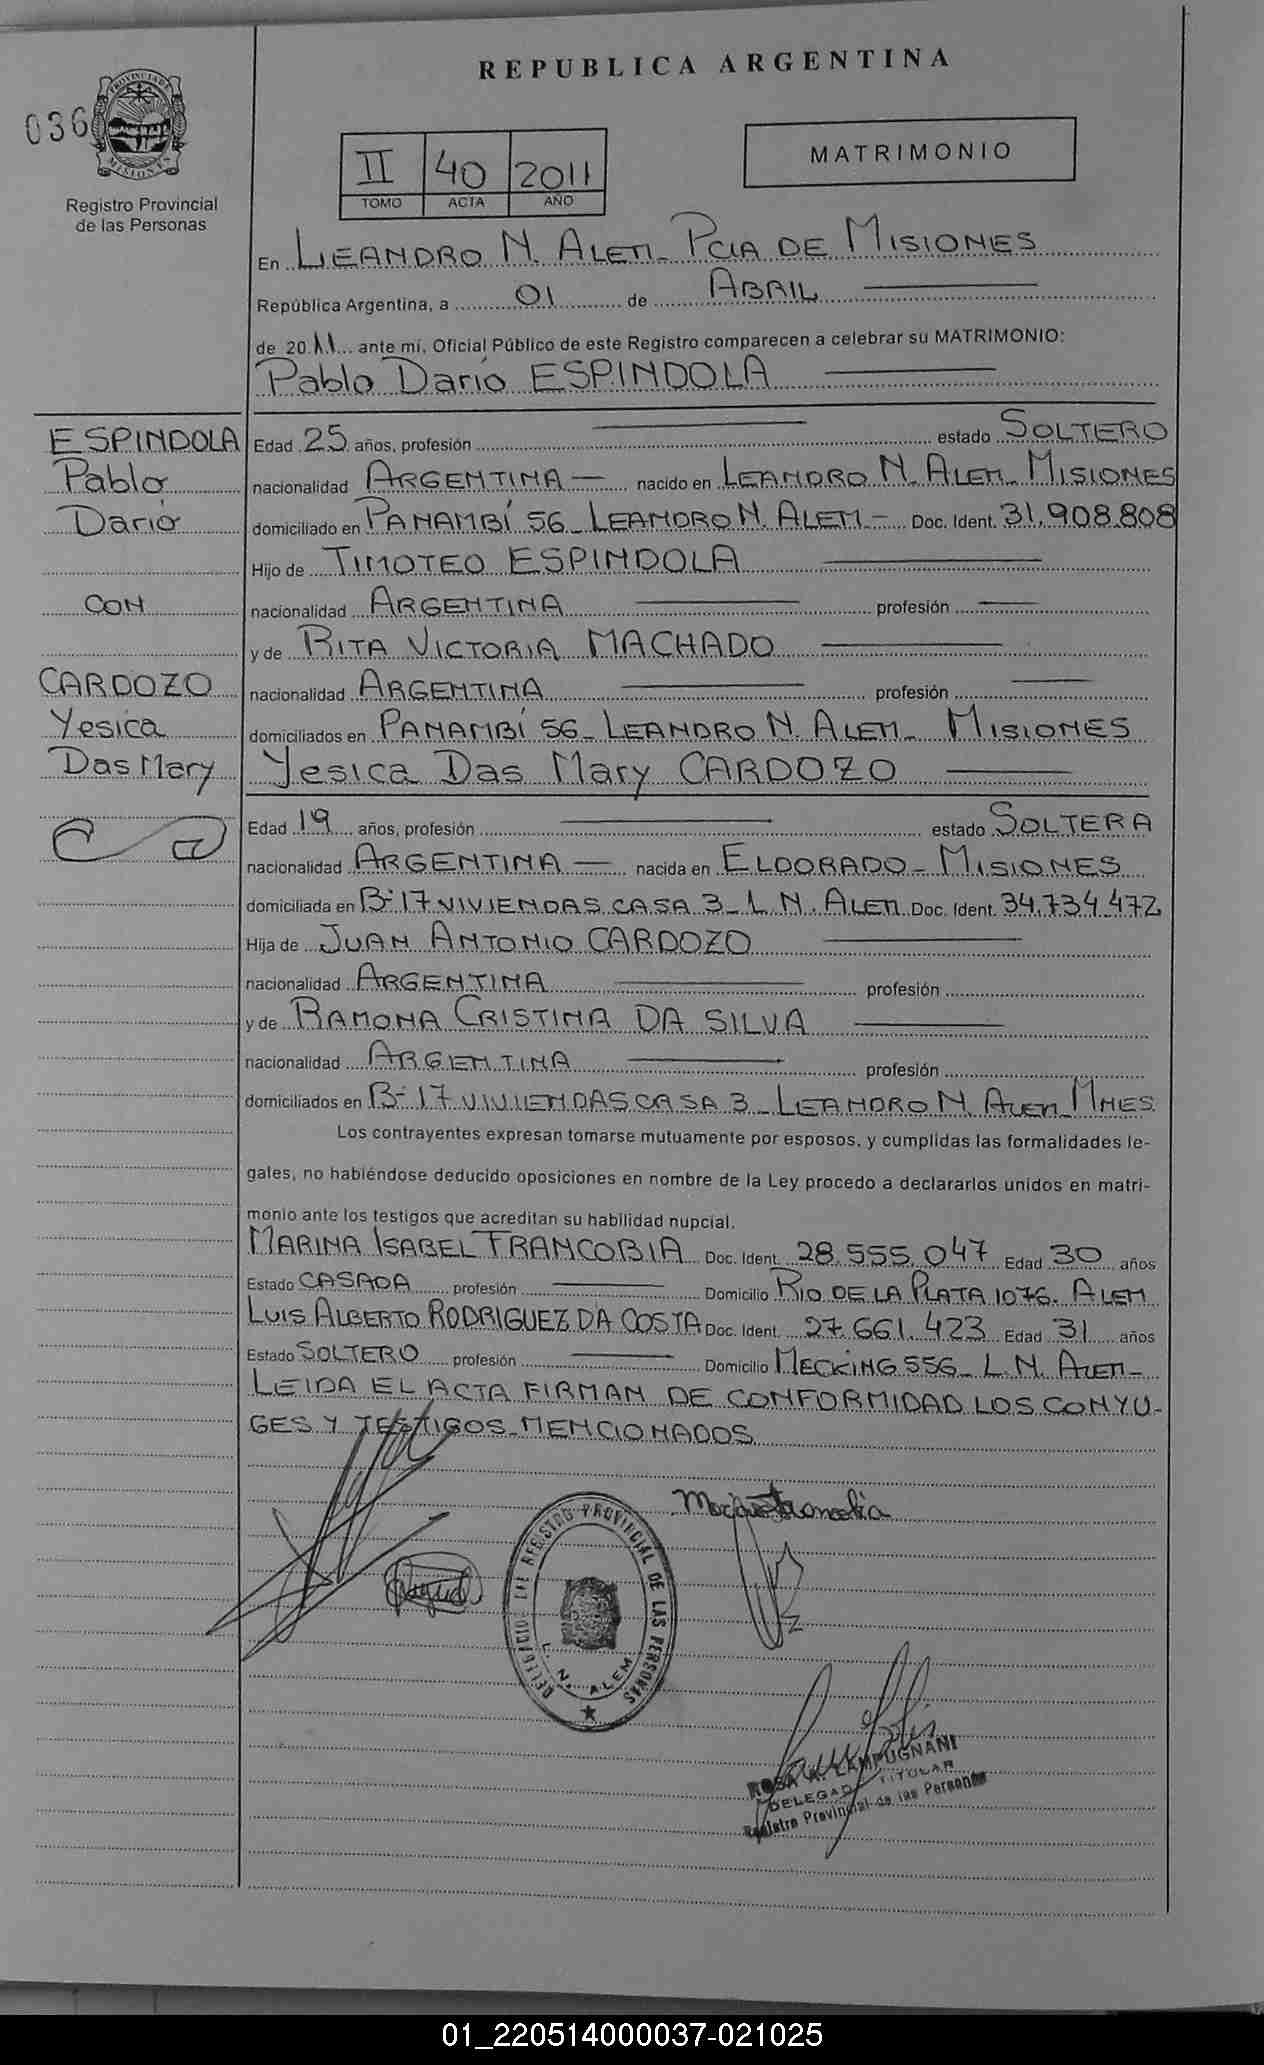 REPUBLICA ARGENTINA
036
PROVINCIA DE MISIONES
Registro Provincial
de las Personas
II 40 2011
TOMO ACTA AÑO
MATRIMONIO
En LEANDRO N. ALEM - PCIA DE MISIONES
República Argentina, a 01 de ABRIL
de 2011 ante mí, Oficial Público de este Registro comparecen a celebrar su MATRIMONIO:
Pablo Darío ESPINDOLA
ESPINDOLA
Pablo
Darío
CON
CARDOZO
Yesica
Das Mary
Edad 25 años, profesión estado SOLTERO
nacionalidad ARGENTINA nacido en LEANDRO N. ALEM - MISIONES
domiciliado en PANAMBÍ 56 - LEANDRO N. ALEM - Doc. Ident. 31.908.808
Hijo de TIMOTEO ESPINDOLA
nacionalidad ARGENTINA profesión
y de RITA VICTORIA MACHADO
nacionalidad ARGENTINA profesión
domiciliados en PANAMBÍ 56 - LEANDRO N. ALEM - MISIONES
Yesica Das Mary CARDOZO
Edad 19 años, profesión estado SOLTERA
nacionalidad ARGENTINA nacida en ELDORADO - MISIONES
domiciliada en B- 17 VIVIENDAS CASA 3 - L. N. ALEM Doc. Ident. 34.734.472
Hija de JUAN ANTONIO CARDOZO
nacionalidad ARGENTINA profesión
y de RAMONA CRISTINA DA SILVA
nacionalidad ARGENTINA profesión
domiciliados en B- 17 VIVIENDAS CASA 3 - LEANDRO N. ALEM - MNES.
Los contrayentes expresan tomarse mutuamente por esposos, y cumplidas las formalidades le-
gales, no habiéndose deducido oposiciones en nombre de la Ley procedo a declararlos unidos en matri-
monio ante los testigos que acreditan su habilidad nupcial.
MARINA ISABEL FRANCOBIA Doc. Ident. 28.555.047 Edad 30 años
Estado CASADA profesión Domicilio RIO DE LA PLATA 1076. ALEM
LUIS ALBERTO RODRIGUEZ DA COSTA Doc. Ident. 27.661.423 Edad 31 años
Estado SOLTERO profesión Domicilio MECKING 556 - L. N. ALEM -
LEIDA EL ACTA FIRMAN DE CONFORMIDAD LOS CONYU-
GES Y TESTIGOS MENCIONADOS
DELEGACION DEL REGISTRO PROVINCIAL DE LAS PERSONAS
L. N. ALEM
ROSA A. LAMPUGNANI
DELEGADA TITULAR
Registro Provincial de las Personas
01_220514000037-021025